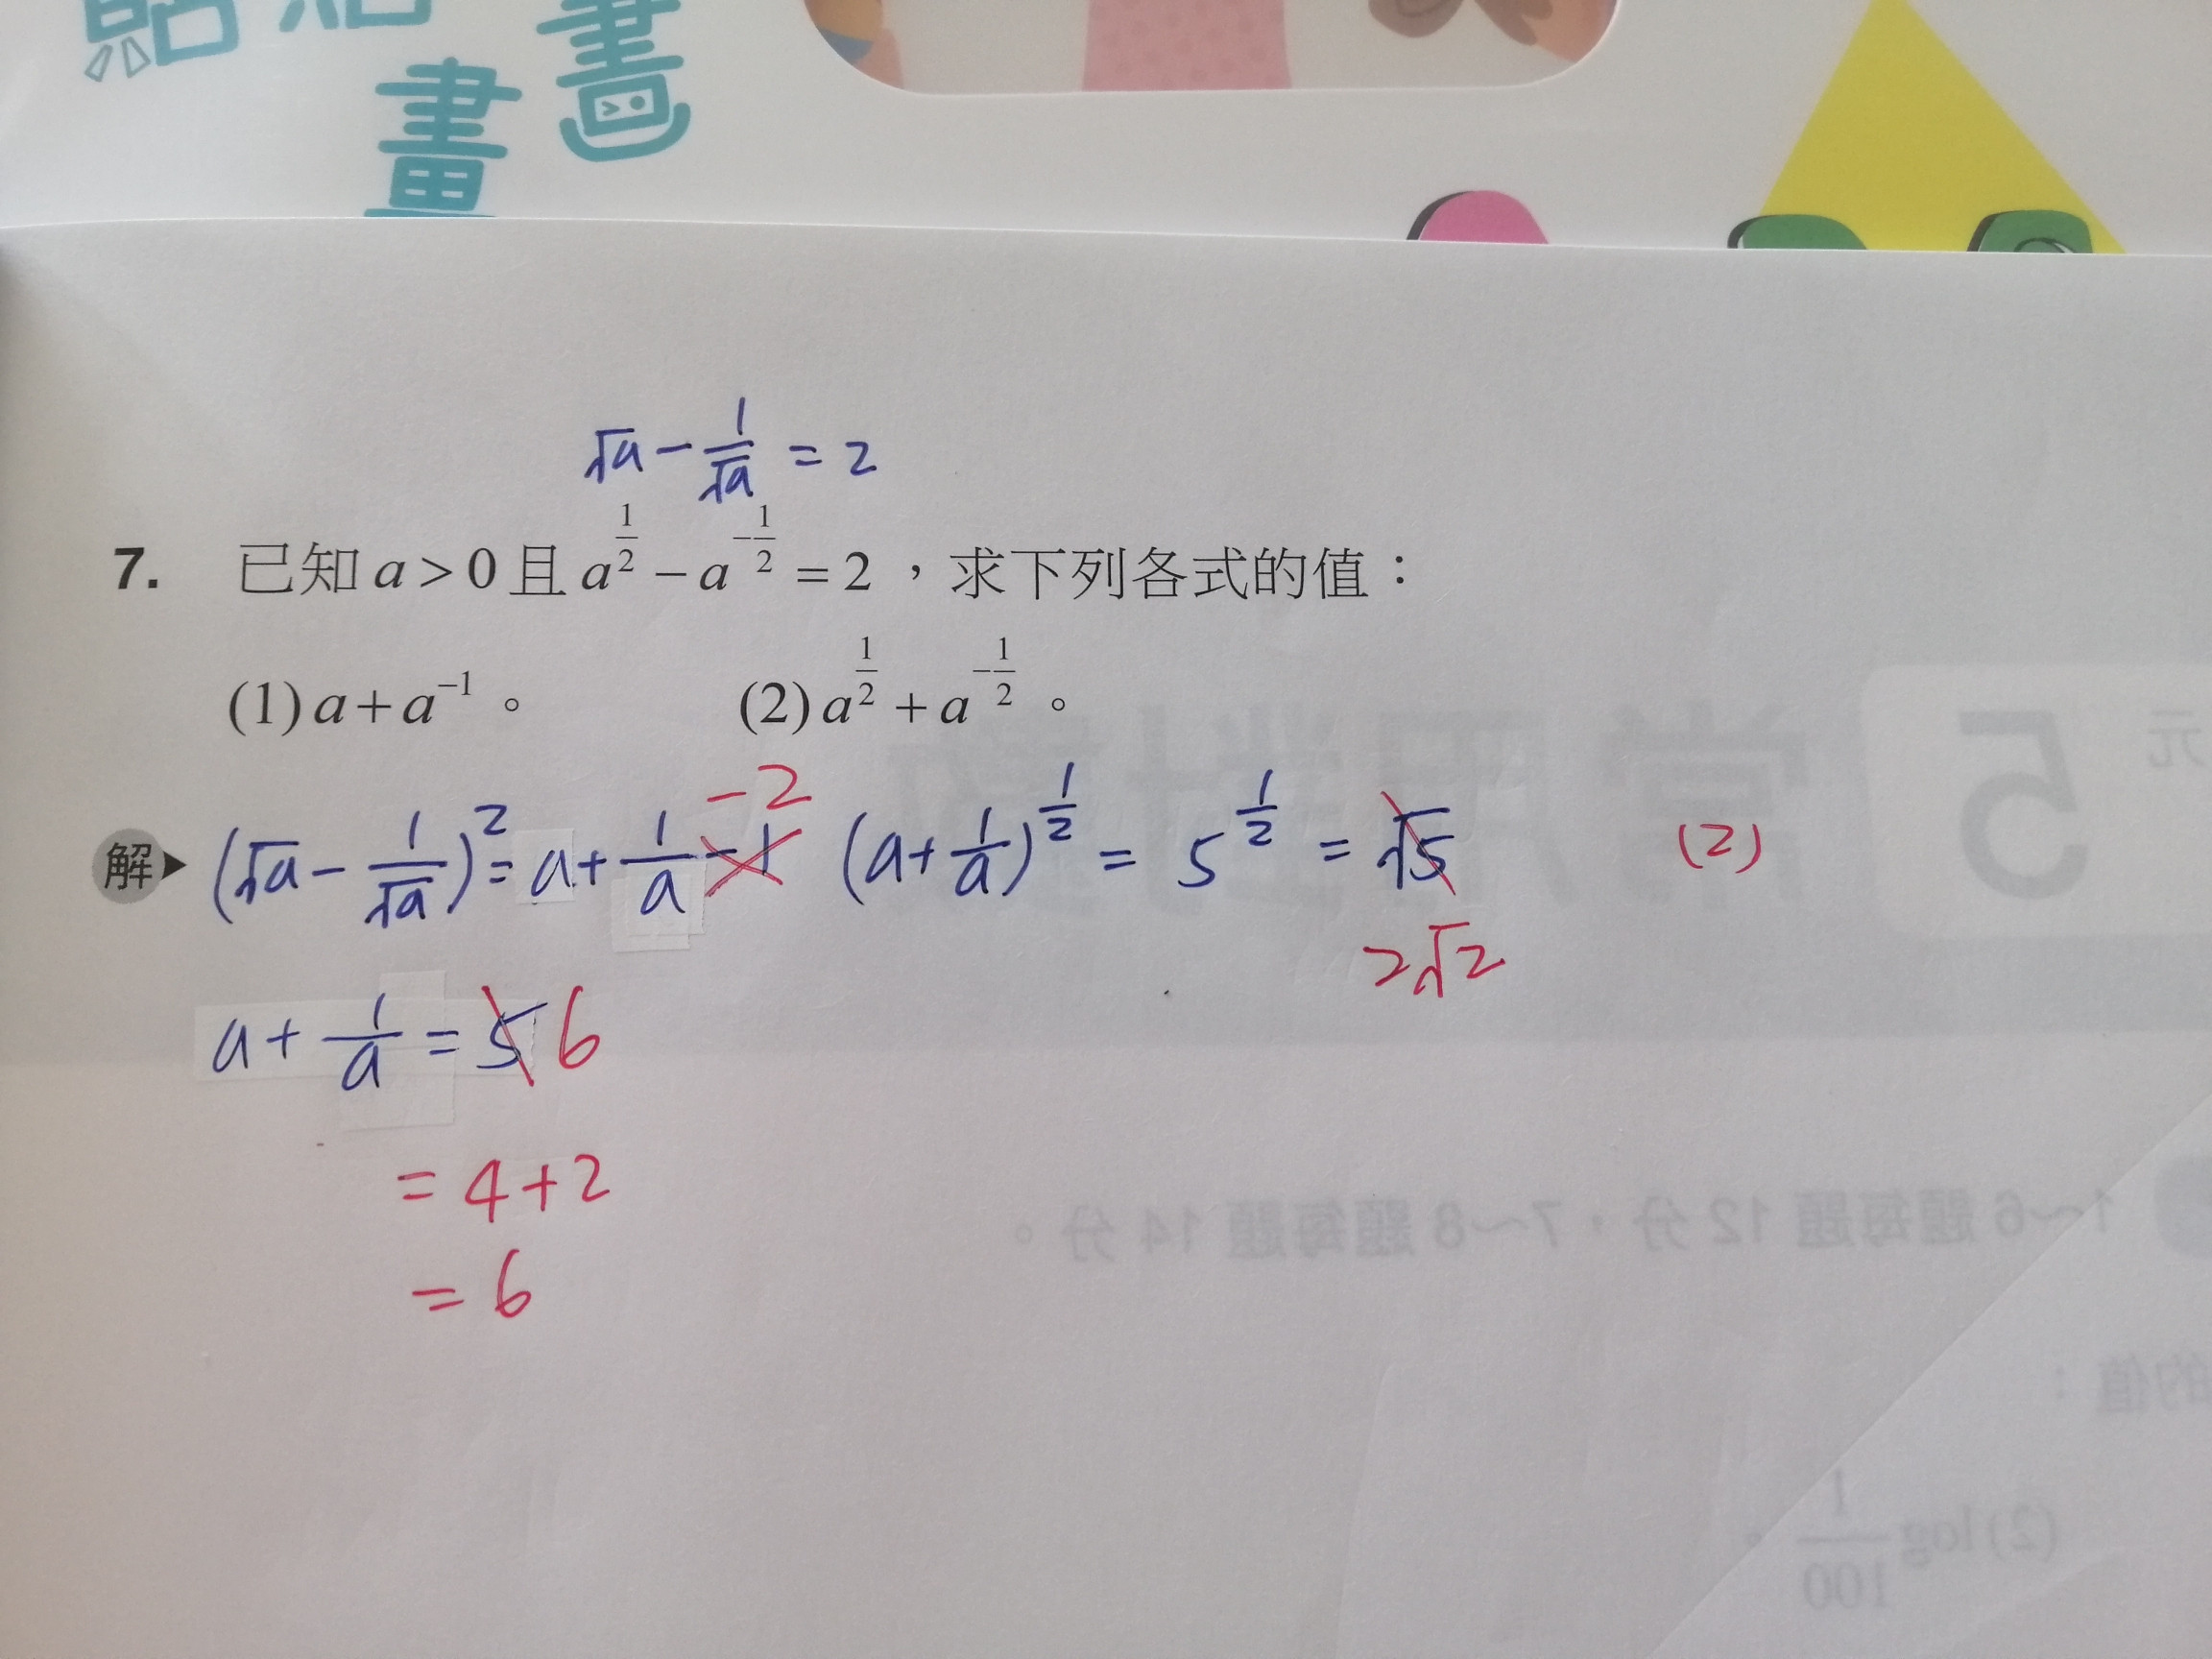 畫
畫
√a - 1/√a = 2
7. 已知 a > 0 且 a^(1/2) - a^(-1/2) = 2，求下列各式的值：
(1) a + a^(-1)。 (2) a^(1/2) + a^(-1/2)。
-2
解▶ (√a - 1/√a)^2 = a + 1/a - 1 (a + 1/a)^(1/2) = 5^(1/2) = √5 (2)
2√2
a + 1/a = 5 6
= 4 + 2
= 6
元 5 常用對數
1～6 題每題 12 分，7～8 題每題 14 分。
的值：
(2) log 1/100。